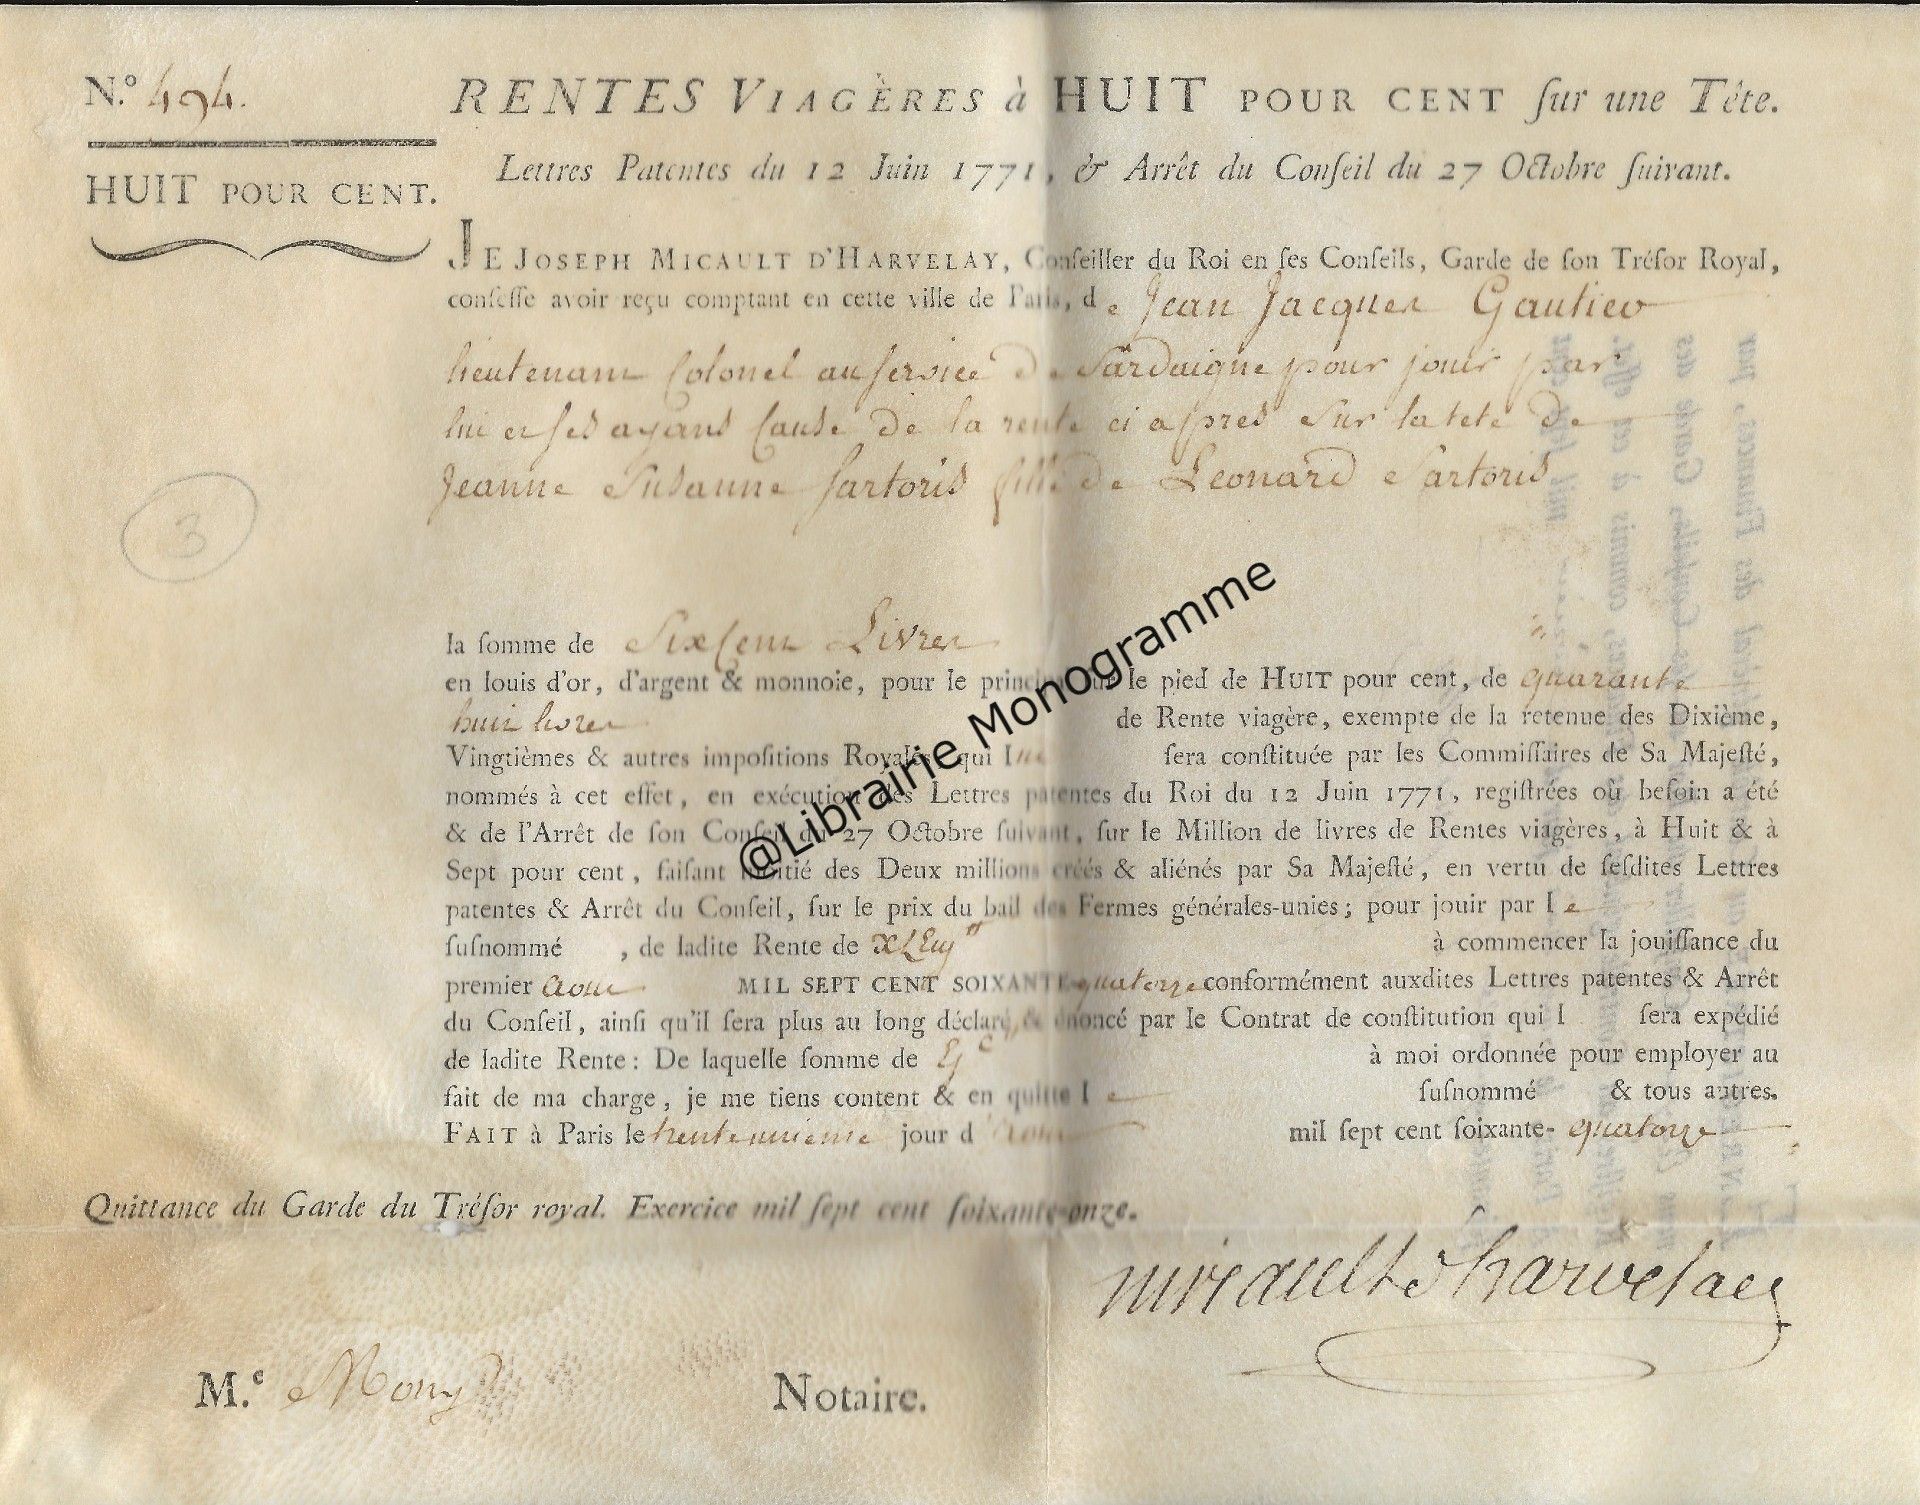 N.º 494.
RENTES VIAGÈRES à HUIT POUR CENT ſur une Tête.
HUIT POUR CENT.
Lettres Patentes du 12 Juin 1771, & Arrêt du Conſeil du 27 Octobre ſuivant.
JE JOSEPH MICAULT D'HARVELAY, Conſeiller du Roi en ſes Conſeils, Garde de ſon Tréſor Royal,
confeſſe avoir reçu comptant en cette ville de Paris, de Jean Jacques Gautier
lieutenant Colonel au ſervice de Sardaigne pour jouir par
lui et ſes ayans Cause de la rente ci apres sur la tete de
Jeanne Susanne Sartoris fille de Leonard Sartoris
3
la ſomme de Six Cent Livres
en louis d'or, d'argent & monnoie, pour le principal, sur le pied de HUIT pour cent, de quarante
huit livres de Rente viagère, exempte de la retenue des Dixième,
Vingtièmes & autres impoſitions Royales, qui lui ſera conſtituée par les Commiſſaires de Sa Majeſté,
nommés à cet effet, en exécution des Lettres patentes du Roi du 12 Juin 1771, regiſtrées où beſoin a été
& de l'Arrêt de ſon Conſeil du 27 Octobre ſuivant, ſur le Million de livres de Rentes viagères, à Huit & à
Sept pour cent, faiſant moitié des Deux millions créés & aliénés par Sa Majeſté, en vertu de ſeſdites Lettres
patentes & Arrêt du Conſeil, ſur le prix du bail des Fermes générales-unies; pour jouir par le
ſuſnommé , de ladite Rente de à commencer la jouiſſance du
premier aout MIL SEPT CENT SOIXANTE-quatorze conformément auxdites Lettres patentes & Arrêt
du Conſeil, ainſi qu'il ſera plus au long déclaré & énoncé par le Contrat de conſtitution qui l ſera expédié
de ladite Rente: De laquelle ſomme de à moi ordonnée pour employer au
fait de ma charge, je me tiens content & en quitte le ſuſnommé & tous autres.
FAIT à Paris le trente unieme jour d'aout mil ſept cent ſoixante-quatorze
Quittance du Garde du Tréſor royal. Exercice mil ſept cent ſoixante-onze.
Micault d'harvelay
M.e Mony Notaire.
@Librairie Monogramme